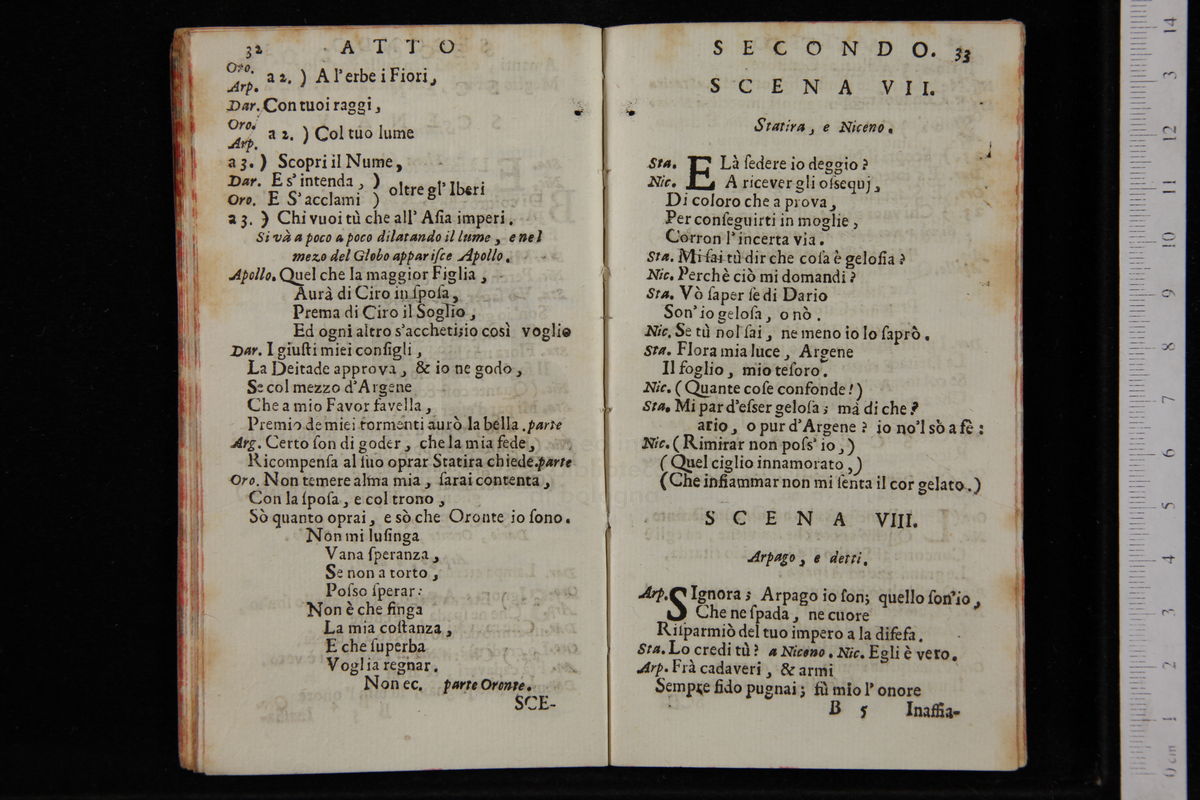 32 ATTO
Oro.
Arp. a 2. ) A l'erbe i Fiori,
Dar. Con tuoi raggi,
Oro.
Arp. a 2. ) Col tuo lume
a 3. ) Scopri il Nume,
Dar. E s'intenda, )
Oro. E S'acclami ) oltre gl' Iberi
a 3. ) Chi vuoi tù che all' Aſia imperi.
Si và a poco a poco dilatando il lume, e nel
mezo del Globo appariſce Apollo.
Apollo. Quel che la maggior Figlia,
Aurà di Ciro in ſpoſa,
Prema di Ciro il Soglio,
Ed ogni altro s'accheti; io così voglio
Dar. I giuſti miei conſigli,
La Deitade approva, & io ne godo,
Se col mezzo d'Argene
Che a mio Favor favella,
Premio de miei tormenti aurò la bella. parte
Arg. Certo ſon di goder, che la mia fede,
Ricompenſa al ſuo oprar Statira chiede. parte
Oro. Non temere alma mia, ſarai contenta,
Con la ſpoſa, e col trono,
Sò quanto oprai, e sò che Oronte io ſono.
Non mi luſinga
Vana ſperanza,
Se non a torto,
Poſso ſperar:
Non è che finga
La mia coſtanza,
E che ſuperba
Voglia regnar.
Non ec. parte Oronte.
SCE-
SECONDO. 33
SCENA VII.
Statira, e Niceno.
Sta. E Là ſedere io deggio?
Nic. A ricever gli oſsequj,
Di coloro che a prova,
Per conſeguirti in moglie,
Corron l'incerta via.
Sta. Mi ſai tù dir che coſa è geloſia?
Nic. Perchè ciò mi domandi?
Sta. Vò ſaper ſe di Dario
Son' io geloſa, o nò.
Nic. Se tù nol ſai, ne meno io lo ſaprò.
Sta. Flora mia luce, Argene
Il foglio, mio teſoro.
Nic. (Quante coſe confonde!)
Sta. Mi par d'eſser geloſa; mà di che?
ario, o pur d'Argene? io no'l sò a fè:
Nic. (Rimirar non poſs' io,)
(Quel ciglio innamorato,)
(Che infiammar non mi ſenta il cor gelato.)
SCENA VIII.
Arpago, e detti.
Arp. SIgnora; Arpago io ſon; quello ſon'io,
Che ne ſpada, ne cuore
Riſparmiò del tuo impero a la difeſa.
Sta. Lo credi tù? a Niceno. Nic. Egli è vero.
Arp. Frà cadaveri, & armi
Sempre fido pugnai; fù mio l' onore
B 5 Inaffia-